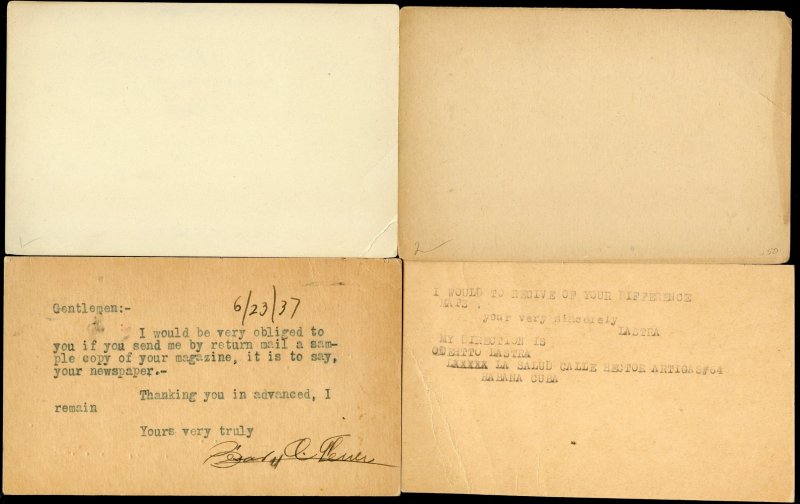 2
.50
Gentlemen:-
6/23/37
I would be very obliged to
you if you send me by return mail a sam-
ple copy of your magazine, it is to say,
your newspaper.-
Thanking you in advanced, I
remain
Yours very truly
I WOULD TO RECIVE OF YOUR DIFFERENCE
MAPS .
your very sincerely
LASTRA
MY DIRECTION IS
LASTRA
LXXXXA LA SALUD CALLE HECTOR ARTIGAS#64
HABANA CUBA